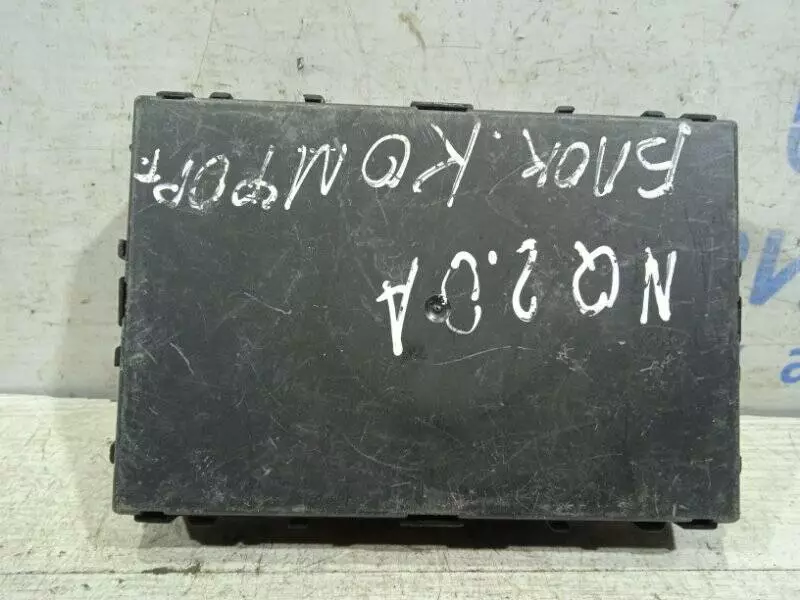 БЛОК. КОМФОРТ.
NQ 2.0A